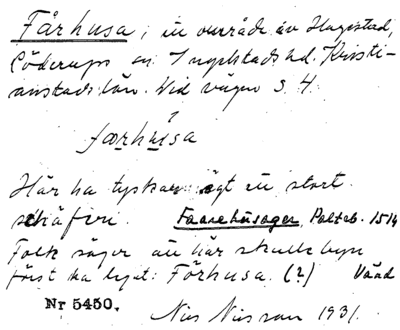 Fårhusa, in område av Hagestad,
Löderups sn. Ingelstads hd. Kristi-
anstads län. Vid vägen S. 4.
færhusa
Här ha tyskar ägt en stort
schäferi. Faarehusager, Palteb. 1514
Folk säger att här skulle byn
först ha legat: Fårhusa. (?) Vänd
Nr 5450.
Nils Nilsson 1931.